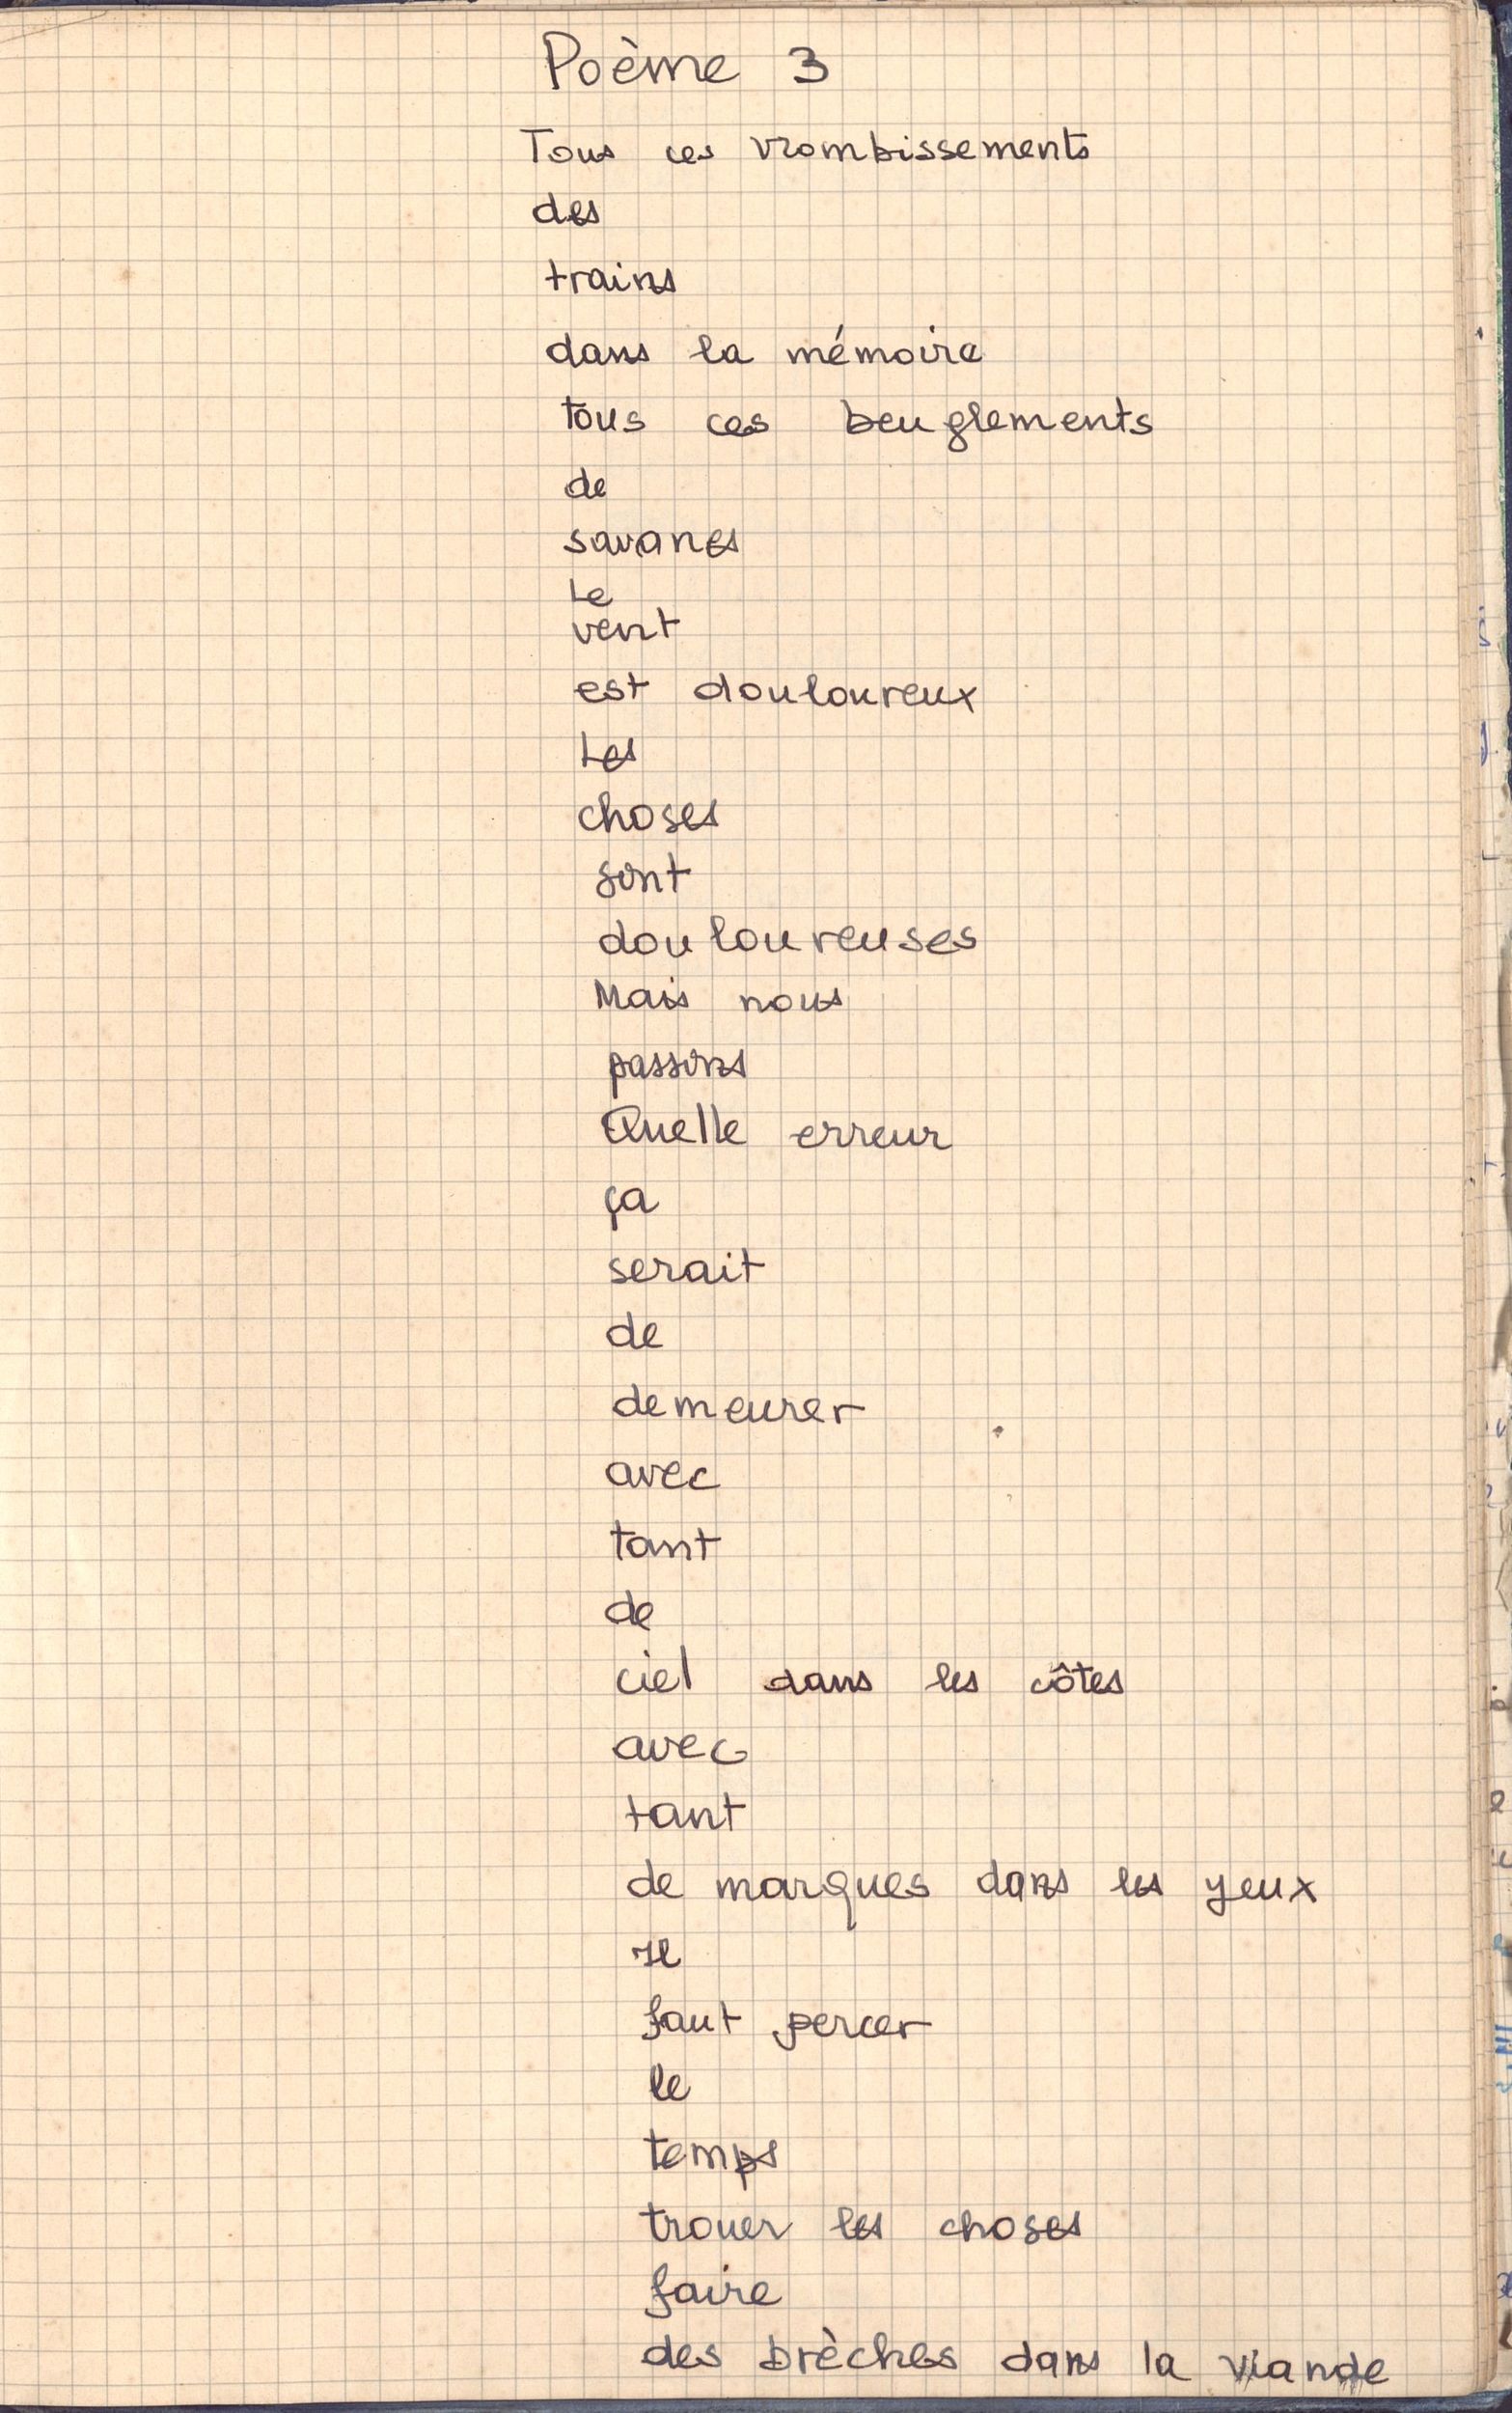 Poème 3
Tous ces vrombissements
des
trains
dans la mémoire
tous ces beuglements
de
savanes
Le
vent
est douloureux
Les
choses
sont
douloureuses
Mais nous
passons
Quelle erreur
ça
serait
de
demeurer
avec
tant
de
ciel dans les côtes
avec
tant
de marques dans les yeux
Il
faut percer
le
temps
trouer les choses
faire
des brèches dans la viande